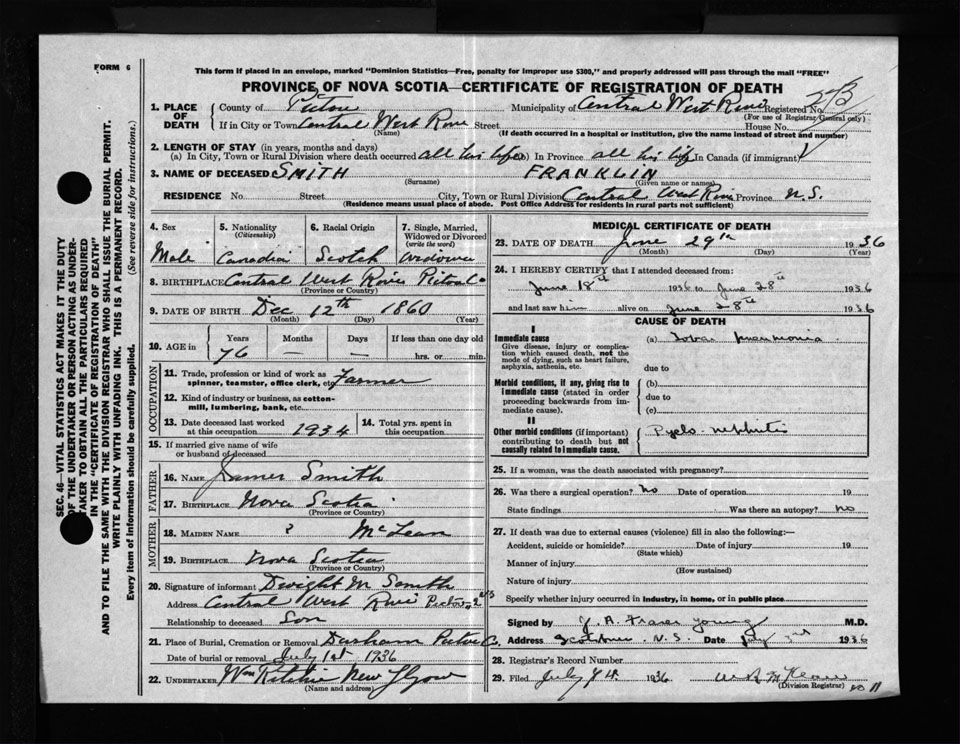 FORM 6
This form if placed in an envelope, marked "Dominion Statistics—Free, penalty for improper use $300," and properly addressed will pass through the mail "FREE"
PROVINCE OF NOVA SCOTIA—CERTIFICATE OF REGISTRATION OF DEATH
1. PLACE OF DEATH
County of Pictou Municipality of Central West River Registered No.
(For use of Registrar General only)
If in City or Town Central West River Street House No.
(Name) (If death occurred in a hospital or institution, give the name instead of street and number)
2. LENGTH OF STAY (in years, months and days)
(a) In City, Town or Rural Division where death occurred all his life (b) In Province all his life In Canada (if immigrant)
3. NAME OF DECEASED SMITH FRANKLIN
(Surname) (Given name or names)
RESIDENCE No. Street City, Town or Rural Division Central West River Province N.S.
(Residence means usual place of abode. Post Office Address for residents in rural parts not sufficient)
4. Sex 5. Nationality (Citizenship) 6. Racial Origin 7. Single, Married, Widowed or Divorced (write the word)
Male Canadian Scotch Widower
8. BIRTHPLACE Central West River Pictou Co
(Province or Country)
9. DATE OF BIRTH Dec 12th 1860
(Month) (Day) (Year)
10. AGE in Years Months Days If less than one day old
76 — — hrs. or min.
OCCUPATION
11. Trade, profession or kind of work as spinner, teamster, office clerk, etc. Farmer
12. Kind of industry or business, as cotton-mill, lumbering, bank, etc.
13. Date deceased last worked at this occupation 1934 14. Total yrs. spent in this occupation
15. If married give name of wife or husband of deceased
FATHER
16. NAME James Smith
17. BIRTHPLACE Nova Scotia
(Province or Country)
MOTHER
18. MAIDEN NAME ? McLean
19. BIRTHPLACE Nova Scotia
(Province or Country)
20. Signature of informant Dwight M Smith
Address Central West River Pictou
Relationship to deceased Son
21. Place of Burial, Cremation or Removal Durham Pictou C.
Date of burial or removal July 1st 1936
22. UNDERTAKER Wm Ritchie New Glasgow
(Name and address)
MEDICAL CERTIFICATE OF DEATH
23. DATE OF DEATH June 29th 1936
(Month) (Day) (Year)
24. I HEREBY CERTIFY that I attended deceased from:
June 18th 1936 to June 28th 1936
and last saw him alive on June 28th 1936
CAUSE OF DEATH
I
Immediate cause (a) Lobar pneumonia
Give disease, injury or complication which caused death, not the mode of dying, such as heart failure, asphyxia, asthenia, etc.
due to
Morbid conditions, if any, giving rise to immediate cause (stated in order proceeding backwards from immediate cause).
(b)
due to
(c)
II
Other morbid conditions (if important) contributing to death but not causally related to immediate cause.
Pyelo-nephritis
25. If a woman, was the death associated with pregnancy?
26. Was there a surgical operation? No Date of operation 19
State findings Was there an autopsy? no
27. If death was due to external causes (violence) fill in also the following:—
Accident, suicide or homicide? Date of injury 19
(State which)
Manner of injury
(How sustained)
Nature of injury
Specify whether injury occurred in industry, in home, or in public place
Signed by J. A. Fraser Young M.D.
Address N.S. Date July 1936
28. Registrar's Record Number
29. Filed July 1936
(Division Registrar)
11
SEC. 46—VITAL STATISTICS ACT MAKES IT THE DUTY
OF THE UNDERTAKER OR PERSON ACTING AS UNDER-
TAKER TO OBTAIN ALL THE PARTICULARS REQUIRED
IN THE "CERTIFICATE OF REGISTRATION OF DEATH"
AND TO FILE THE SAME WITH THE DIVISION REGISTRAR WHO SHALL ISSUE THE BURIAL PERMIT.
WRITE PLAINLY WITH UNFADING INK. THIS IS A PERMANENT RECORD.
Every item of information should be carefully supplied. (See reverse side for instructions.)